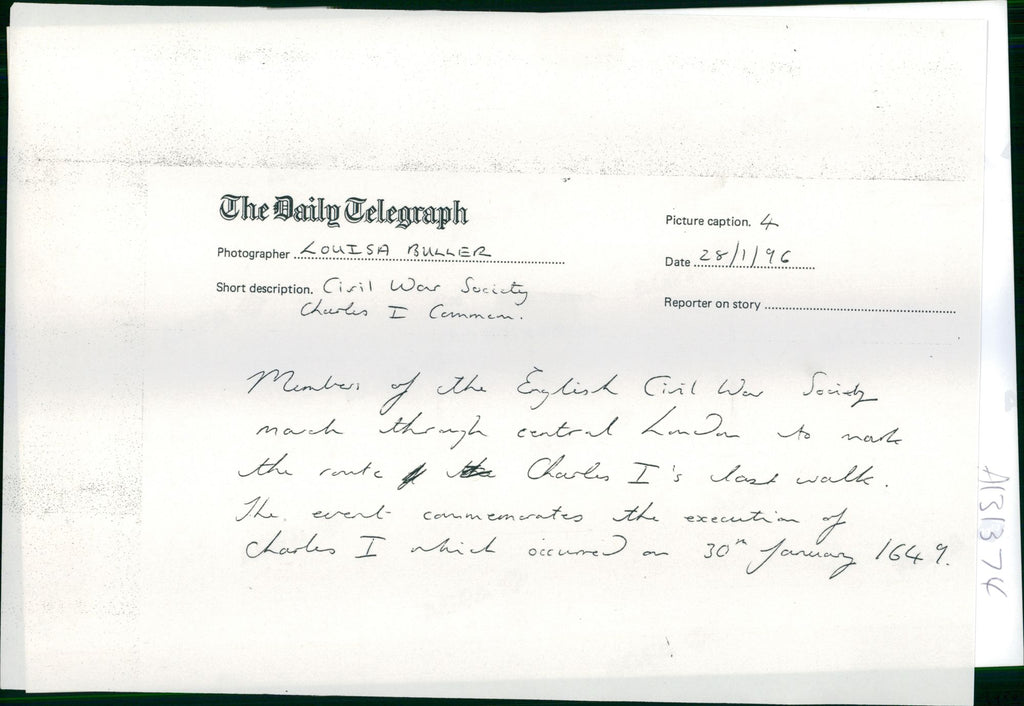 The Daily Telegraph
Picture caption. 4
Photographer LOUISA BULLER
Date 28/1/96
Short description. Civil War Society
Charles I Commem.
Reporter on story
Members of the English Civil War Society
march through central London to mark
the route of Charles I's last walk.
The event commemorates the execution of
Charles I which occurred on 30th January 1649.
A131374